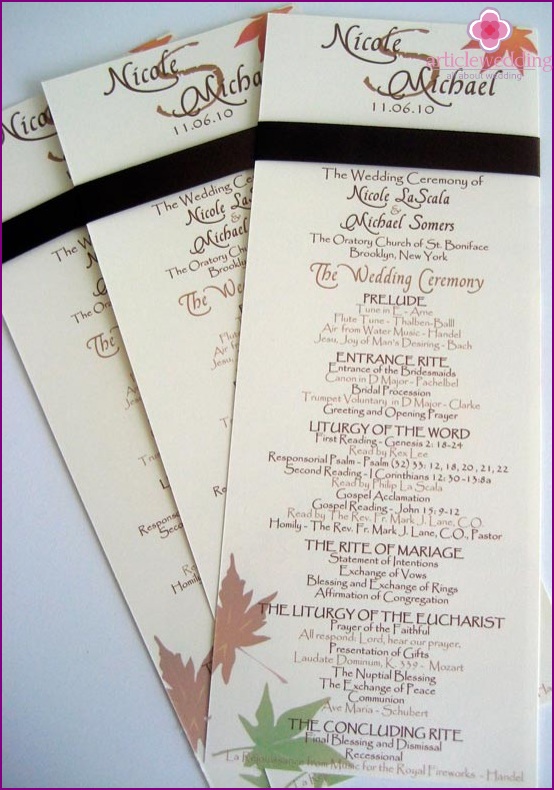 articlewedding
all about wedding
Nicole
Michael
11.06.10
The Wedding Ceremony of
Nicole LaScala
&
Michael Somers
The Oratory Church of St. Boniface
Brooklyn, New York
The Wedding Ceremony
PRELUDE
Tune in E - Arne
Flute Tune - Thalben-Balll
Air from Water Music - Handel
Jesu, Joy of Man's Desiring - Bach
ENTRANCE RITE
Entrance of the Bridesmaids
Canon in D Major - Pachelbel
Bridal Procession
Trumpet Voluntary in D Major - Clarke
Greeting and Opening Prayer
LITURGY OF THE WORD
First Reading - Genesis 2: 18-24
Read by Rex Lee
Responsorial Psalm - Psalm (32) 33: 12, 18, 20, 21, 22
Second Reading - I Corinthians 12: 30-13:8a
Read by Philip La Scala
Gospel Acclamation
Gospel Reading - John 15: 9-12
Read by The Rev. Fr. Mark J. Lane, C.O.
Homily - The Rev. Fr. Mark J. Lane, C.O., Pastor
THE RITE OF MARIAGE
Statement of Intentions
Exchange of Vows
Blessing and Exchange of Rings
Affirmation of Congregation
THE LITURGY OF THE EUCHARIST
Prayer of the Faithful
All respond: Lord, hear our prayer.
Presentation of Gifts
Laudate Dominum, K. 339 - Mozart
The Nuptial Blessing
The Exchange of Peace
Communion
Ave Maria - Schubert
THE CONCLUDING RITE
Final Blessing and Dismissal
Recessional
La Rejouissance from Music for the Royal Fireworks - Handel
Nicole
Michael
11.06.10
The Wedding Ceremony
Nicole La
&
Michael
The Oratory Church
Brooklyn
The We